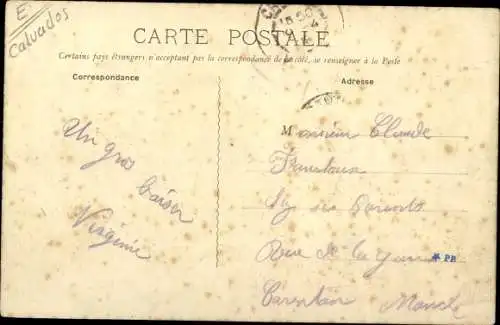 E
Calvados
CARTE POSTALE
Certains pays étrangers n'acceptant pas la correspondance de ce côté, se renseigner à la Poste
Correspondance
Adresse
Un gros
baiser
Virginie
Monsieur Claude
ses Parents
Rue de la
* PR
Carentan Manche